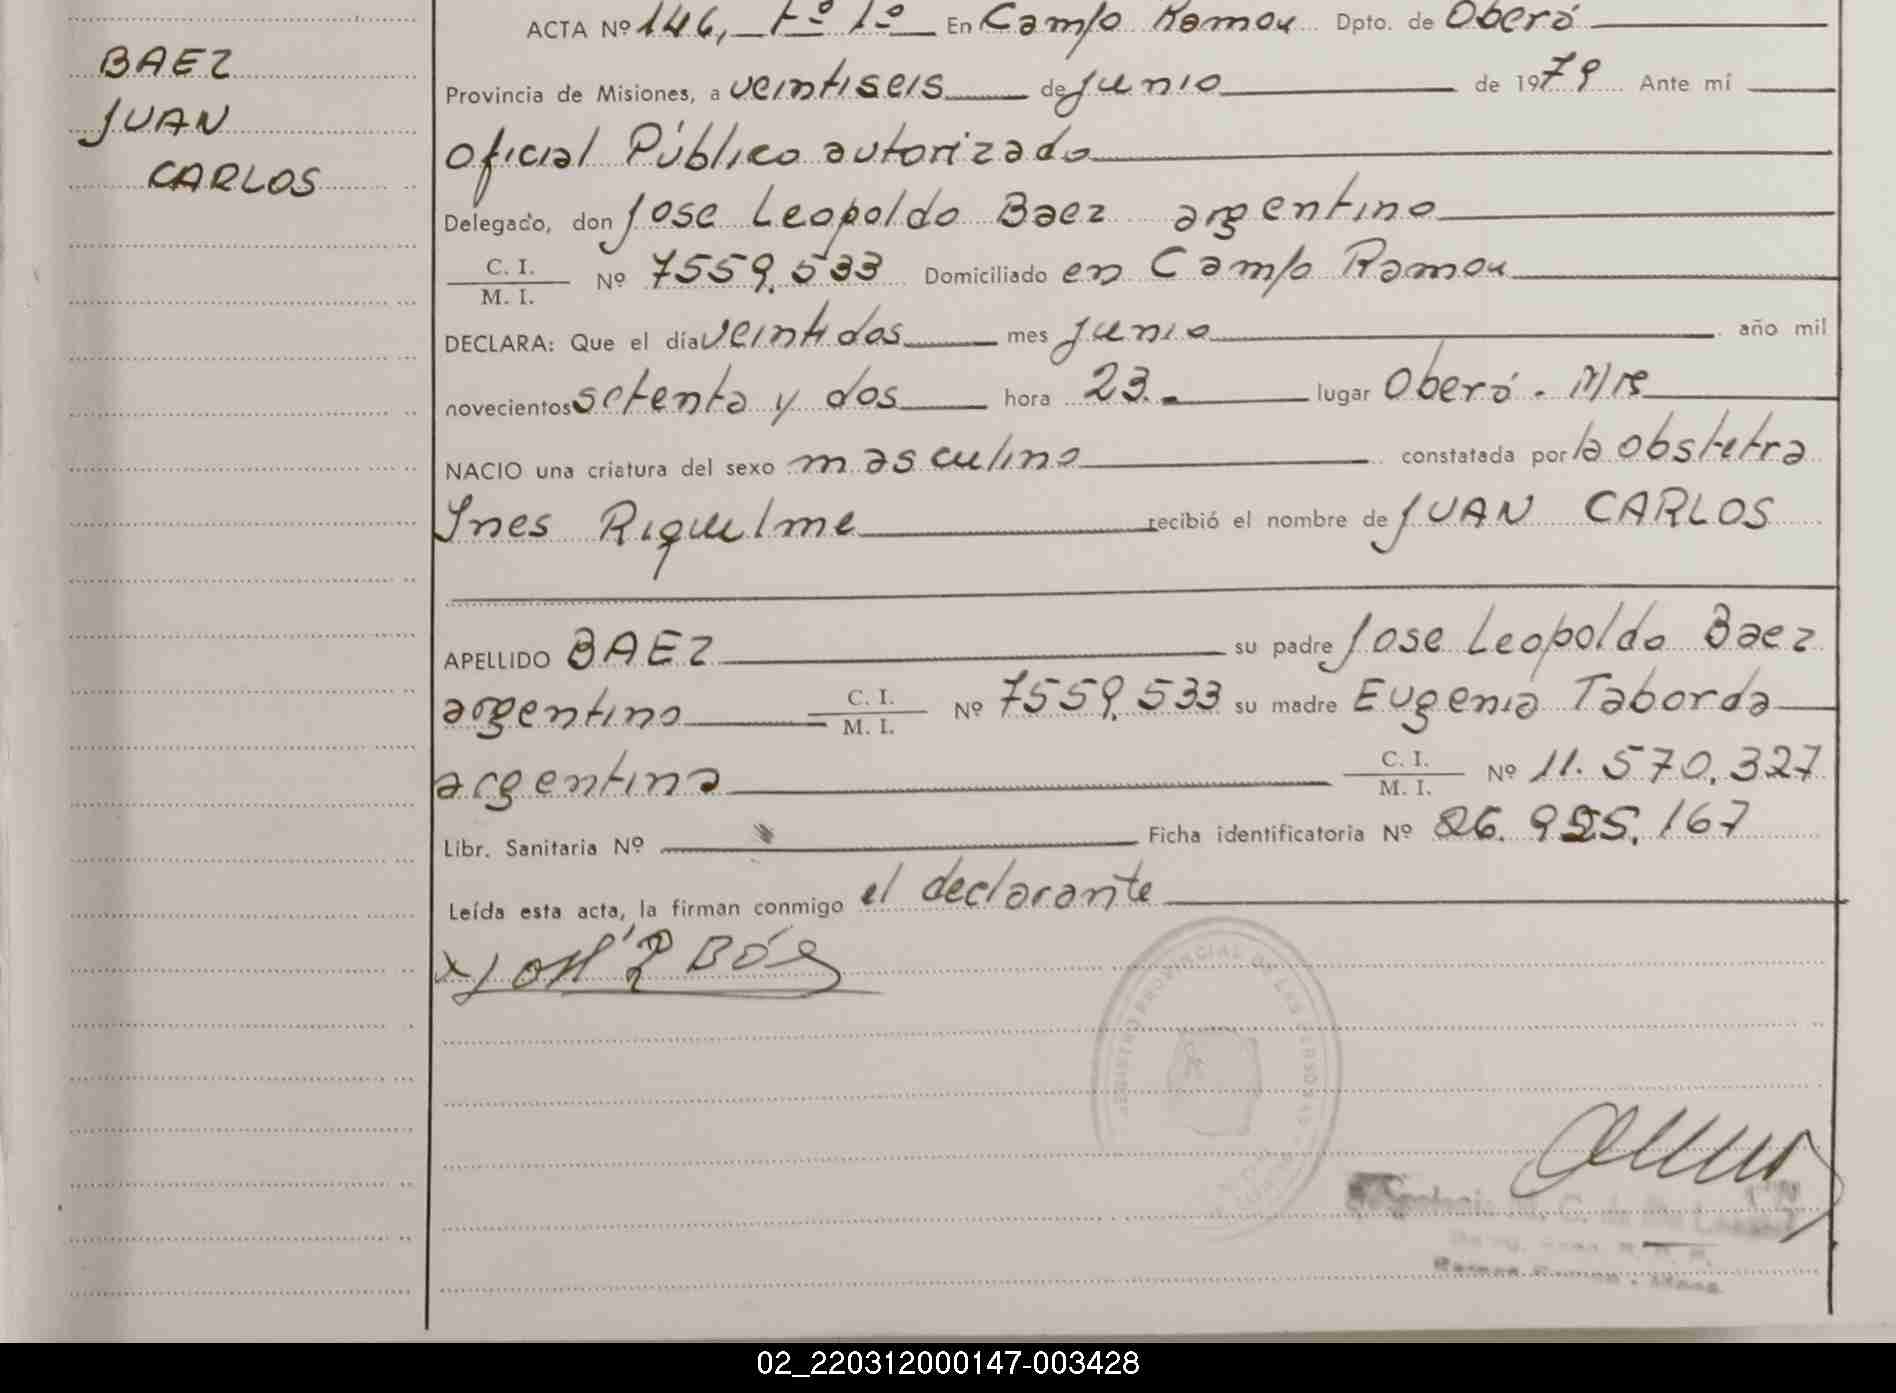 BAEZ
JUAN
CARLOS
ACTA Nº 146, Fº 1º En Campo Ramon Dpto. de Oberá
Provincia de Misiones, a veintiseis de junio de 1979 Ante mí
Oficial Público autorizado
Delegado, don Jose Leopoldo Baez argentino
C. I.
M. I. Nº 7559.533 Domiciliado en Campo Ramon
DECLARA: Que el día veintidos mes junio año mil
novecientos setenta y dos hora 23.- lugar Oberá - Mis
NACIO una criatura del sexo masculino constatada por la obstetra
Ines Riquelme recibió el nombre de JUAN CARLOS
APELLIDO BAEZ su padre Jose Leopoldo Baez
argentino C. I.
M. I. Nº 7559.533 su madre Eugenia Taborda
argentina C. I.
M. I. Nº 11.570.327
Libr. Sanitaria Nº Ficha identificatoria Nº 26.925.167
Leída esta acta, la firman conmigo el declarante
REGISTRO PROVINCIAL DE LAS PERSONAS
02_220312000147-003428